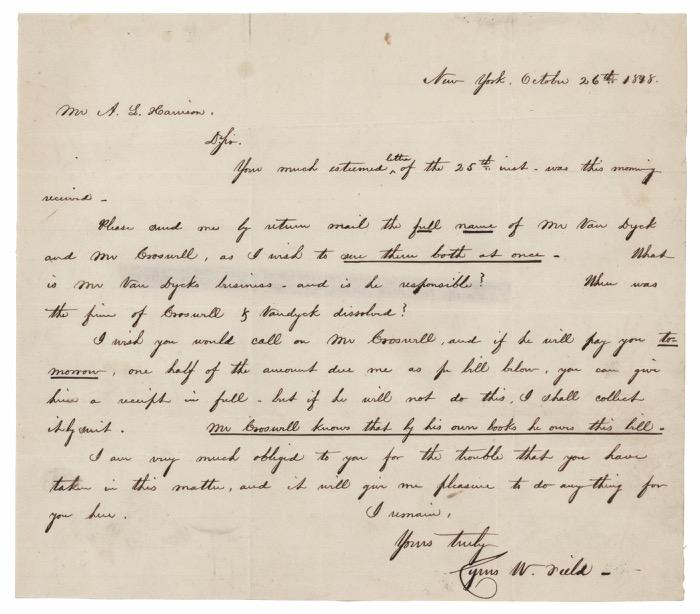 New York, October 26th 1848.
Mr A. L. Harrison.
D Sir.
Your much esteemed letter of the 25th inst - was this morning
received -
Please send me by return mail the full name of Mr Van Dyck
and Mr Croswell, as I wish to sue them both at once - What
is Mr Van Dycks business - and is he responsible? When was
the firm of Croswell & Vandyck dissolved?
I wish you would call on Mr Croswell, and if he will pay you to-
morrow, one half of the amount due me as pr bill below, you can give
him a receipt in full - but if he will not do this, I shall collect
it by suit. Mr Croswell knows that by his own books he owes this bill -
I am very much obliged to you for the trouble that you have
taken in this matter, and it will give me pleasure to do anything for
you here. I remain,
Yours truly
Cyrus W. Field -